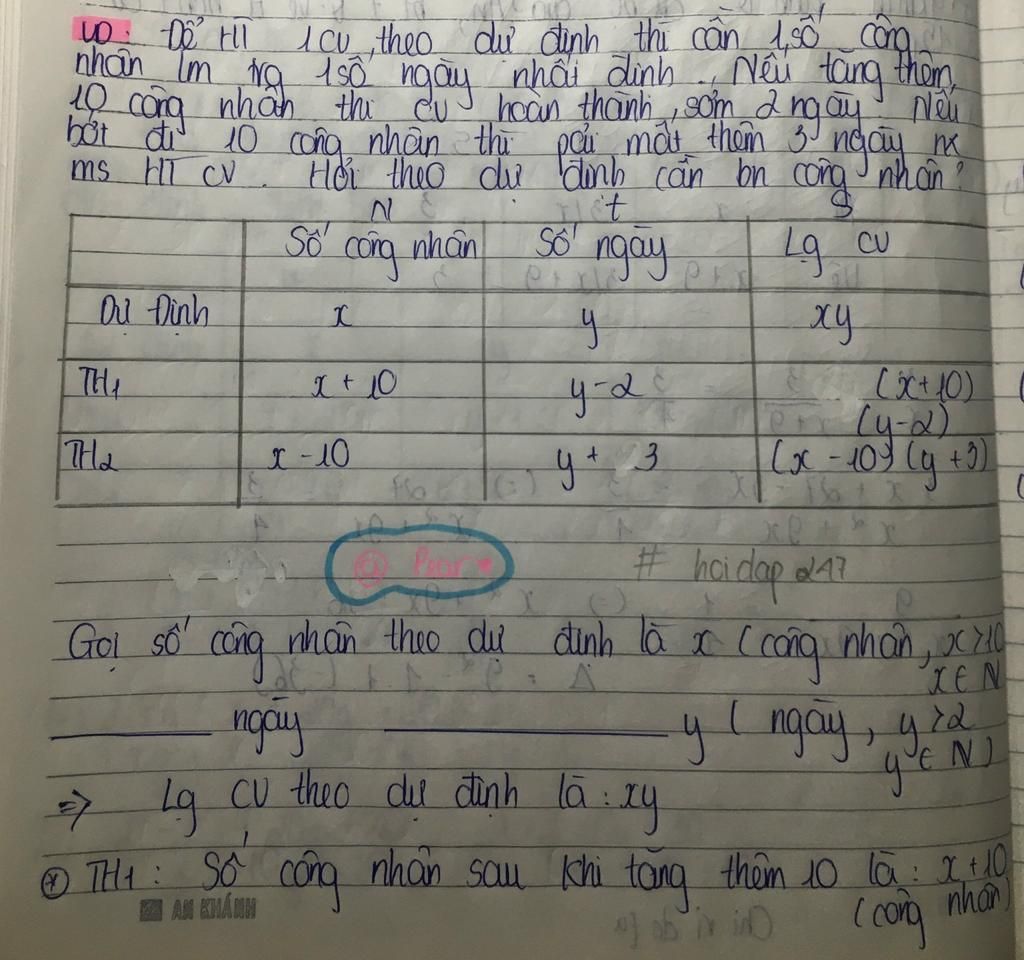 VD: Để HT 1 CV, theo dự định thì cần 1 số công
nhân lm trg 1 số ngày nhất định. Nếu tăng thêm
10 công nhân thì CV hoàn thành sớm 2 ngày. Nếu
bớt đi 10 công nhân thì pải mất thêm 3 ngày nx
ms HT CV. Hỏi theo dự định cần bn công nhân?
N t S
Số công nhân Số ngày Lg CV
Dự Định x y xy
TH1 x + 10 y - 2 (x+10)
(y-2)
TH2 x - 10 y + 3 (x - 10) (y + 3)
# hoidap247
Gọi số công nhân theo dự định là x (công nhân, x > 10
x ∈ N
ngày y ( ngày, y > 2
y ∈ N)
=> Lg CV theo dự định là : xy
* TH1 : Số công nhân sau khi tăng thêm 10 là : x + 10
(công nhân)
AN KHÁNH